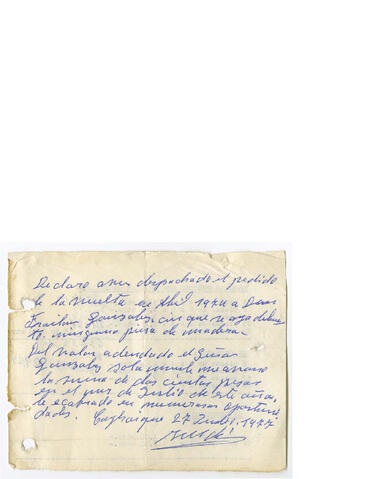 Declaro aver despachado el pedido
de la vuelta en Abril 1974 a Don
Froilan Gonzalez, sin que
ninguna pieza de madera.
Del valor adeudado el Señor
Gonzalez solamente me
la suma de dos cientos pesos
en el mes de Julio de este año,
le e cobrado en numerosas oportuni
dades. 27 Julio, 1977